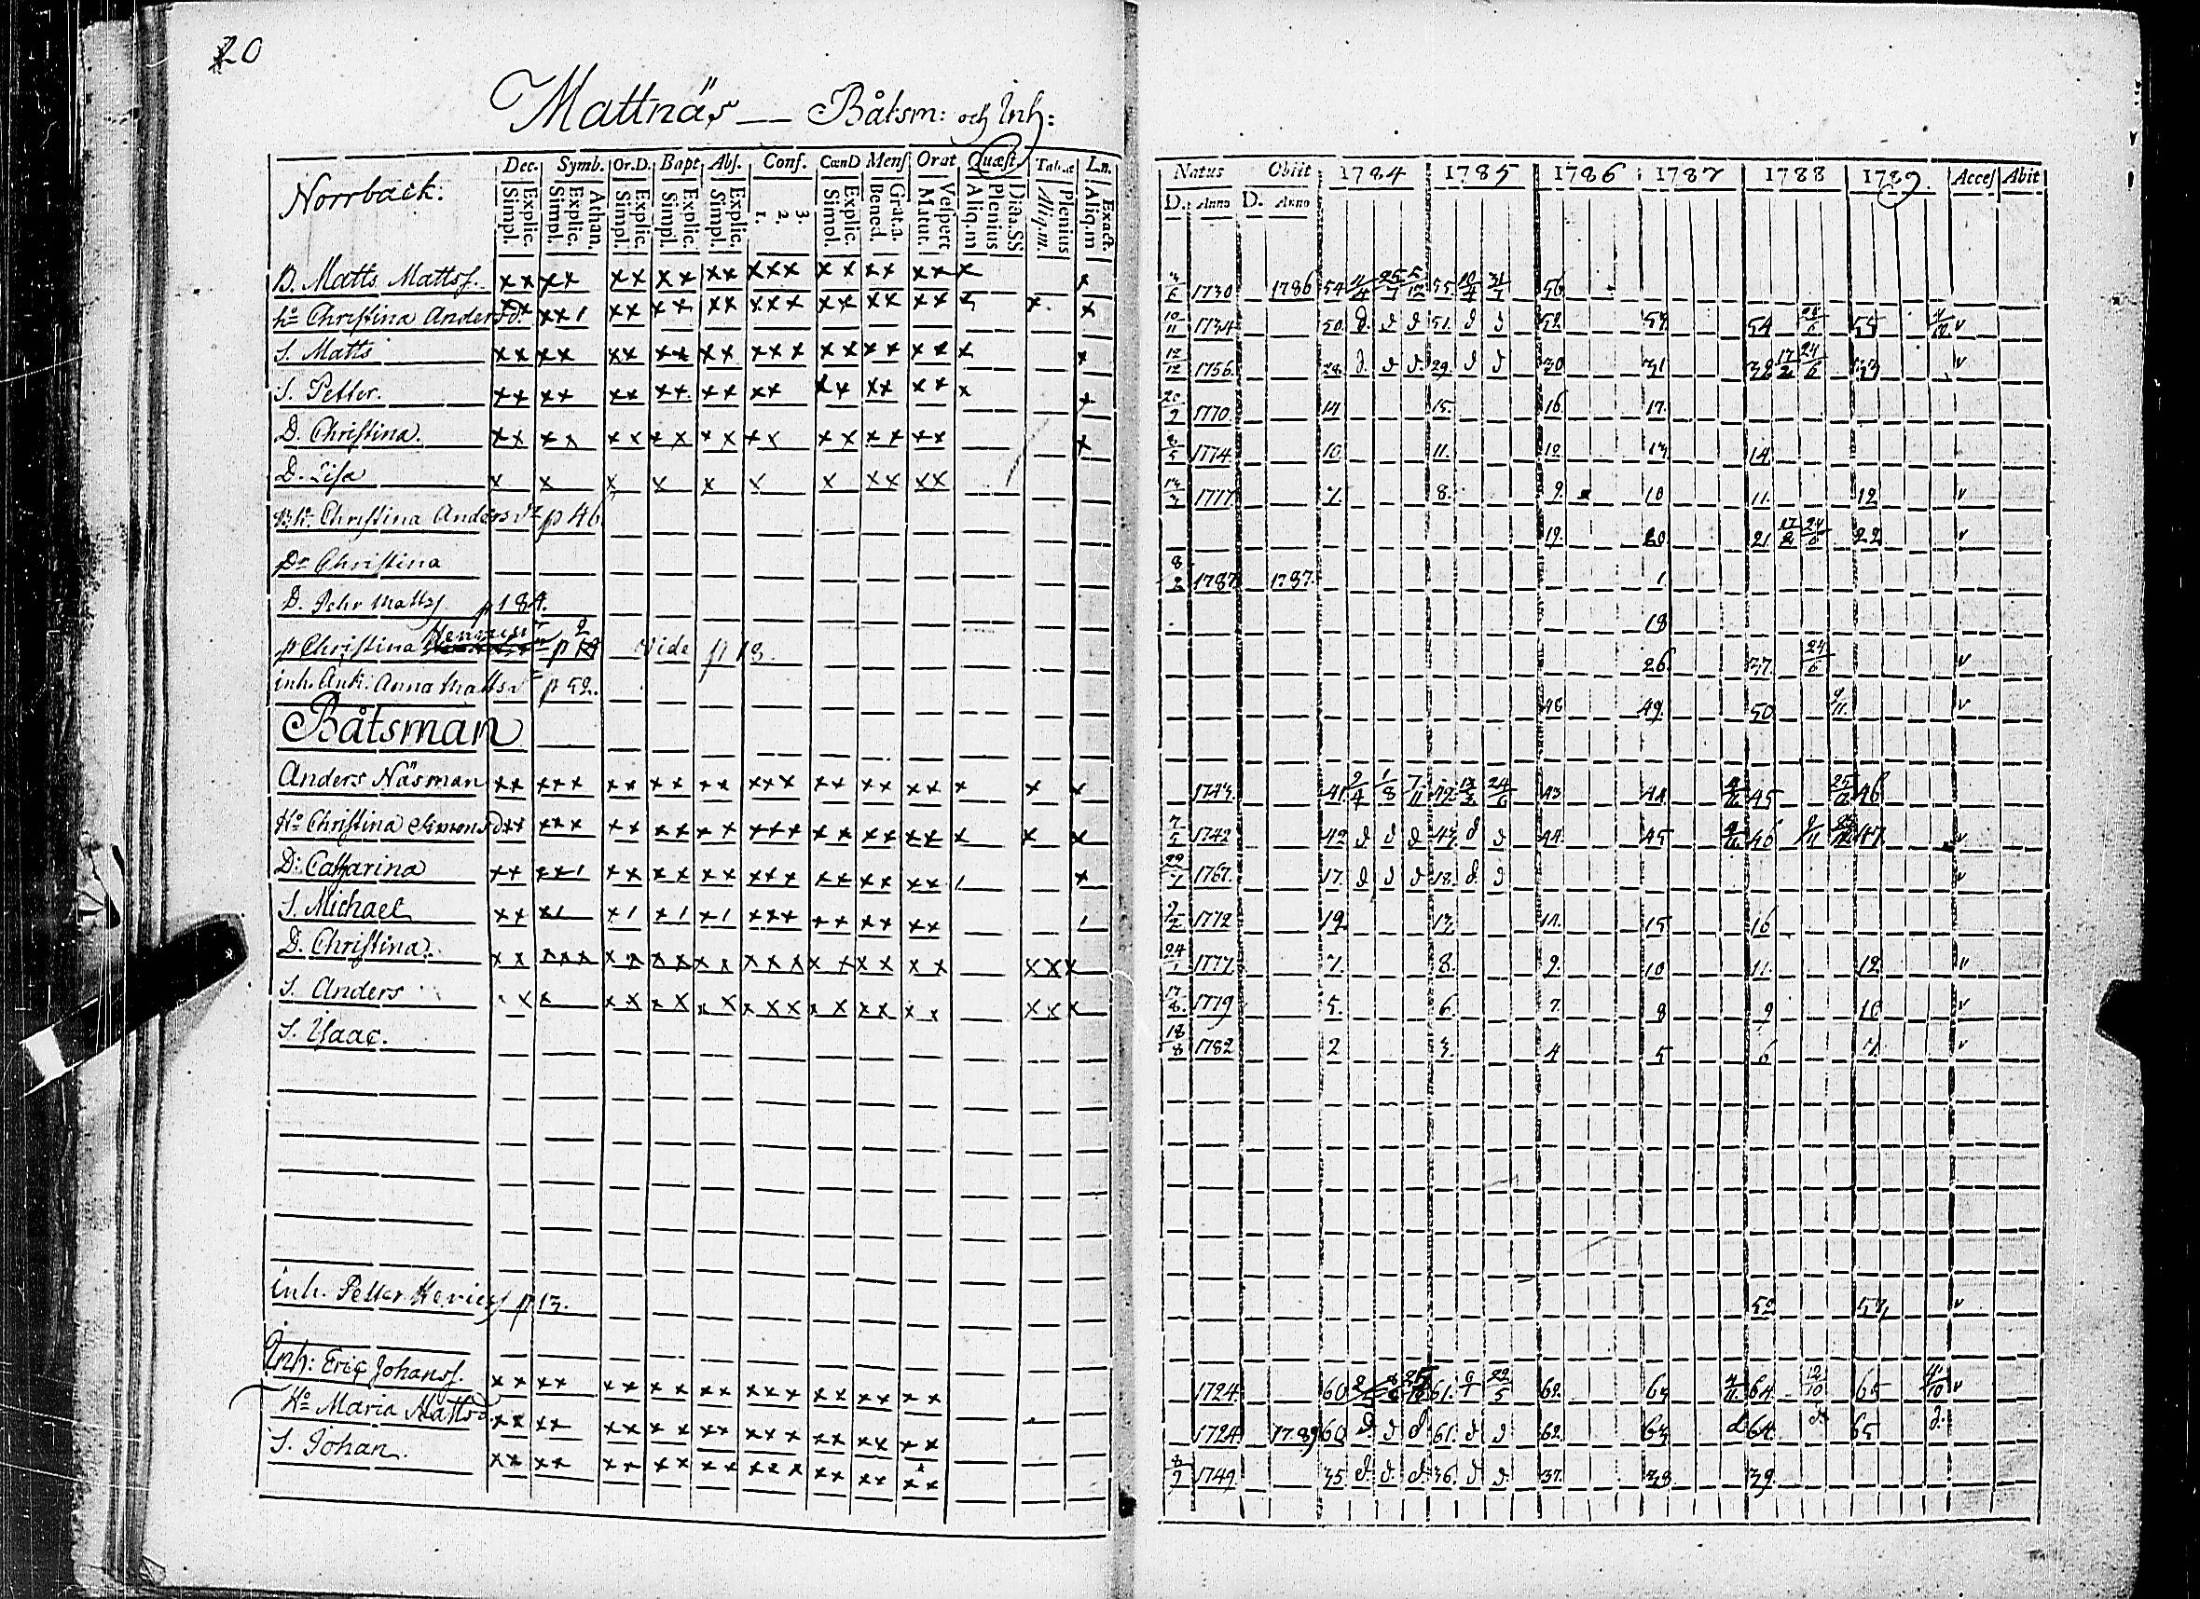 20
Mattnäs — Båtsm: och Inh:
Norrback. Dec. Symb. Or.D. Bapt Abs. Conf. CœnD Mens Orat Quæst. Tabul L.n.
Simpl. Explic. Simpl. Explic. Athan. Simpl. Explic. Simpl. Explic. Simpl. Explic. 1. 2. 3. Simpl. Explic. Bened. Grat.a. Matut. Vespert Aliq.m Plenius Dicta SS Aliq.m. Plenius Aliq.m Exact.
B. Matts Mattsſ. xx xx xx xx xx xxx xx xx xx x x
ho Christina Andersd. xx xx1 xx xx xx xxx xx xx xx x x
S. Matts xx xx xx xx xx xxx xx xx xx x x
S. Petter. xx xx xx xx xx xx xx xx xx x x
D. Christina. xx xx xx xx xx xx xx xx xx x
D. Lisa x x x x x x x xx xx
Christina Andersdr p 46
Dr Christina
D. Johr Mattsſ p 184.
p Christina p Vide p 18.
inh. Ank. Anna Mattsdr p 52.
Båtsman
Anders Näsman xx xxx xx xx xx xxx xx xx xx x x x
Ho Christina Simonsd xx xxx xx xx xx xxx xx xx xx x x x
D: Catharina xx xx1 xx xx xx xxx xx xx xx 1 x
S. Michael xx x1 x1 x1 x1 xxx xx xx xx 1
D. Christina. xx xxx xx xx xx xxx xx xx xx xxx
S. Anders x x xx xx xx xxx xx xx xx xxx
S. Isaac.
inh. Petter Henricſ p 13.
Inh: Eric Johansſ. xx xx xx xx xx xxx xx xx xx
Ho Maria Mattsd xx xx xx xx xx xxx xx xx xx
S. Johan. xx xx xx xx xx xxx xx xx xx
Natus Obiit 1784 1785 1786 1787 1788 1789. Acces Abit
D. Anno D. Anno
1730 1786 54 55 56
10/11 1734 50. d. d d 51. d d 52. 53. 54 55 v
12/12 1756. 28. d. d d. 29. d d 30 31 32 17/2 24/6 33 v
20/9 1770. 14 15. 16. 17.
8/5 1774. 10. 11. 12. 13 14.
13/3 1777. 7. 8. 9. 10 11. 12 v
19. 20. 21. 17/2 24/6 22 v
8/2 1787 1787. 1
18
26. 37. 24/6 v
48 49. 50. 9/11. v
1743. 41. 2/4 1/8 7/11 42. 24/6 43. 44. 45 46
7/5 1742 42 d d d 43. d d 44. 45 46 47. v
29/7 1767. 17. d d d 18. d d v
1772 12. 13. 14. 15 16
24/1 1777. 7. 8. 9. 10 11. 12 v
17/8. 1779 5. 6. 7. 8 9 10 v
18/8 1782 2 3. 4 5 6 7. v
52 53, v
1724. 60 61. 22/5 62. 63 64. 12/10 65 11/10 v
1724. 1789 60 d d d 61. d d 62. 63 d 64. d. 65 d.
1749. 35. d. d. d. 36. d d. 37. 38. 39.